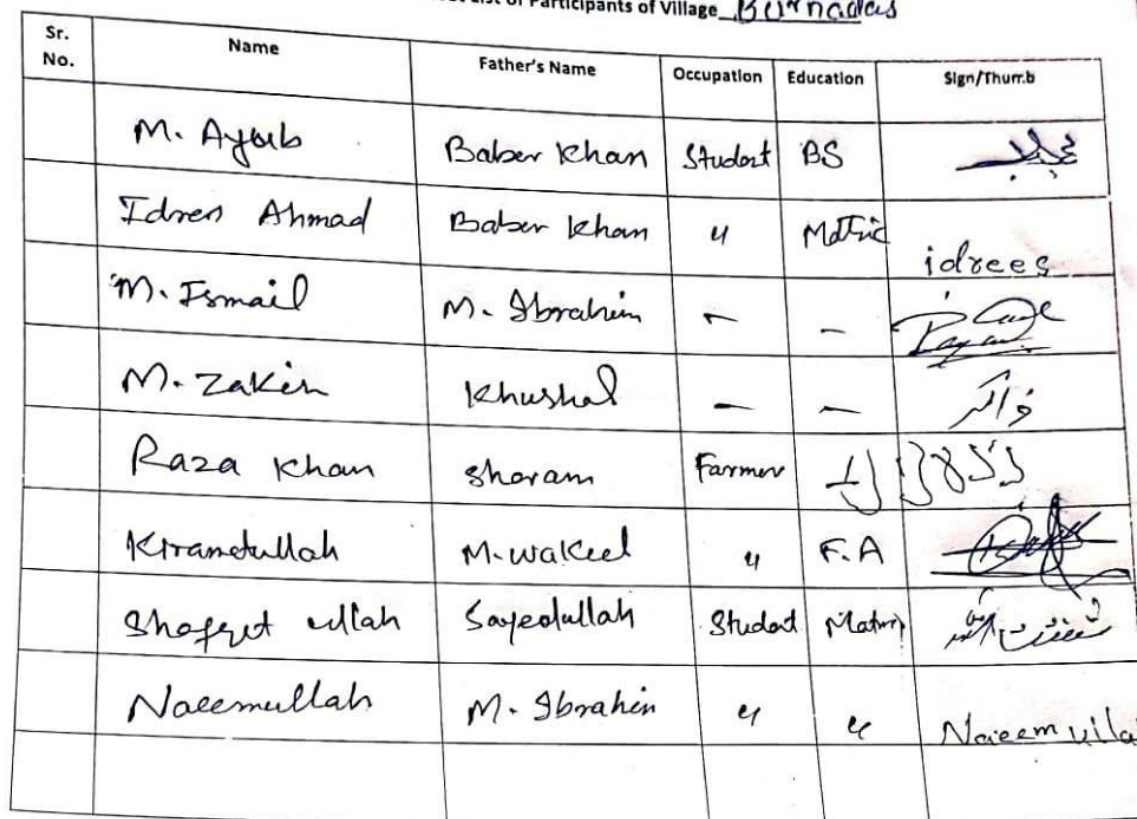 List of Participants of Village Burnadas
Sr. No. Name Father's Name Occupation Education Sign/Thumb
M. Ayub Baber Khan Student BS
Idrees Ahmad Baber Khan " Matric idrees
M. Ismail M. Ibrahim - -
M. Zakir Khushal - - ذاکر
Raza Khan Sharam Farmer
Kiramatullah M. Wakeel " F.A
Shafqat ullah Sayedullah Student Matric شفقت اللہ
Naeemullah M. Ibrahim " " Naeem ulla